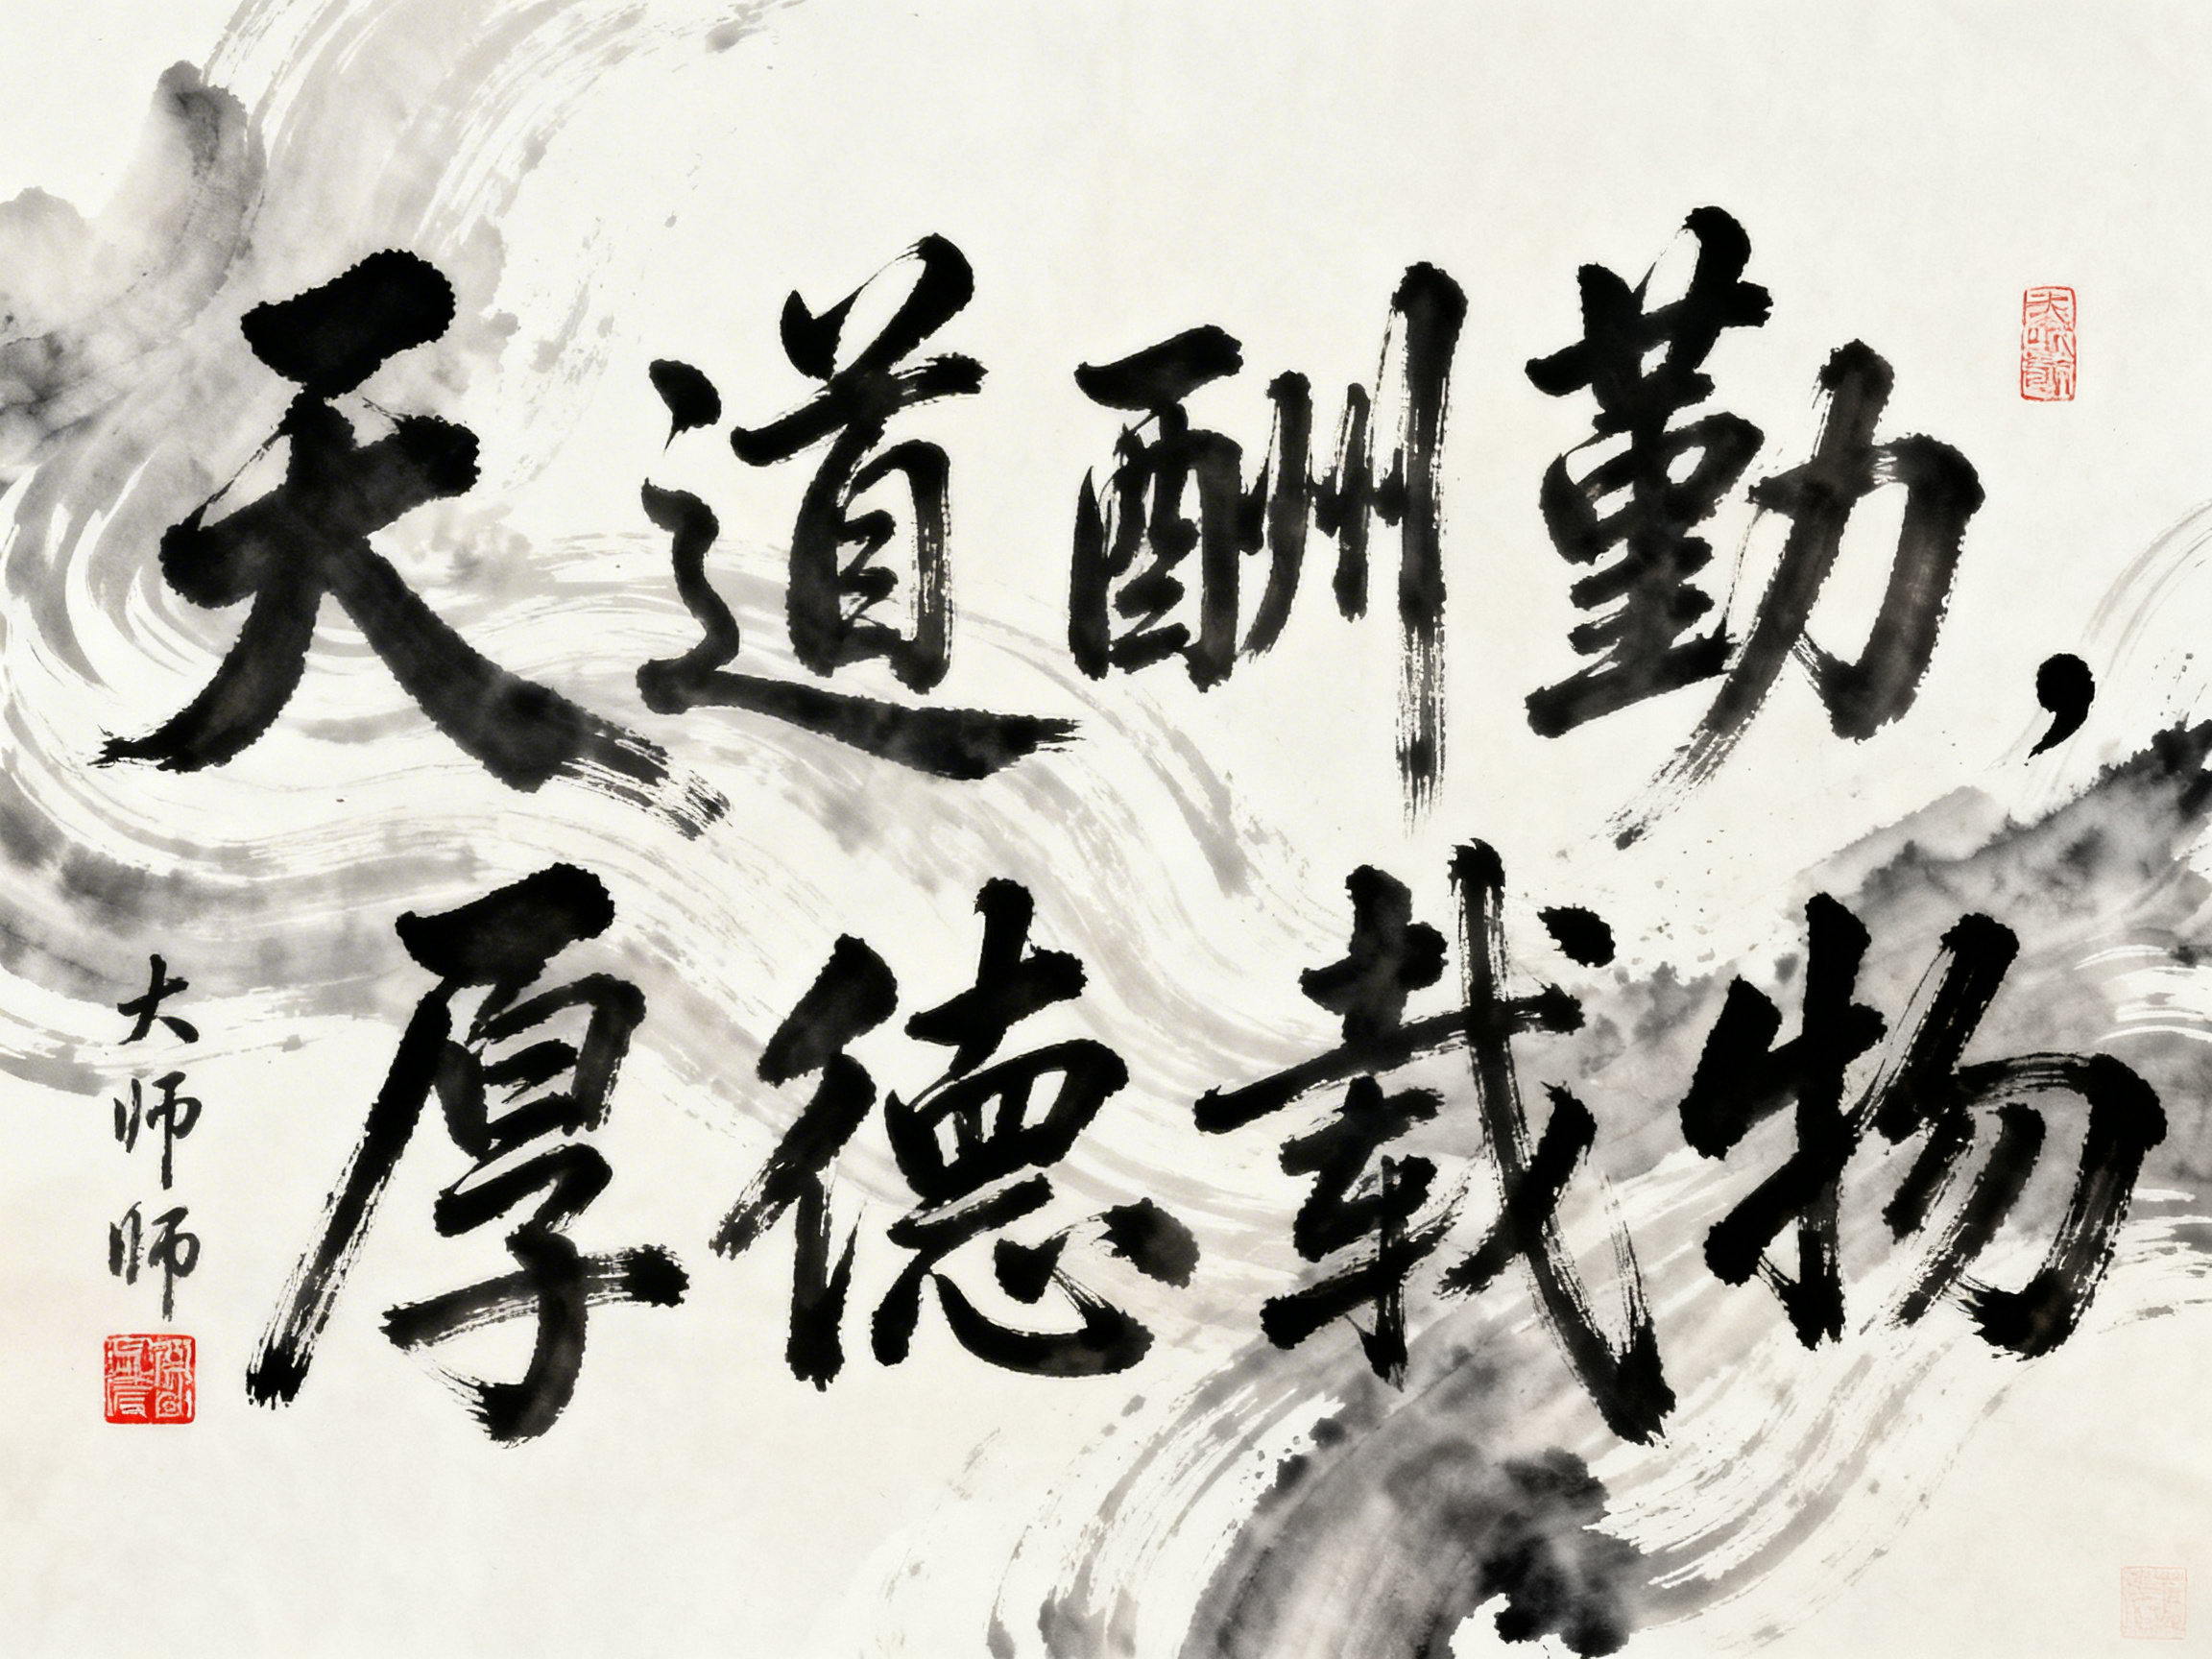 天道酬勤，
厚德载物
大师师